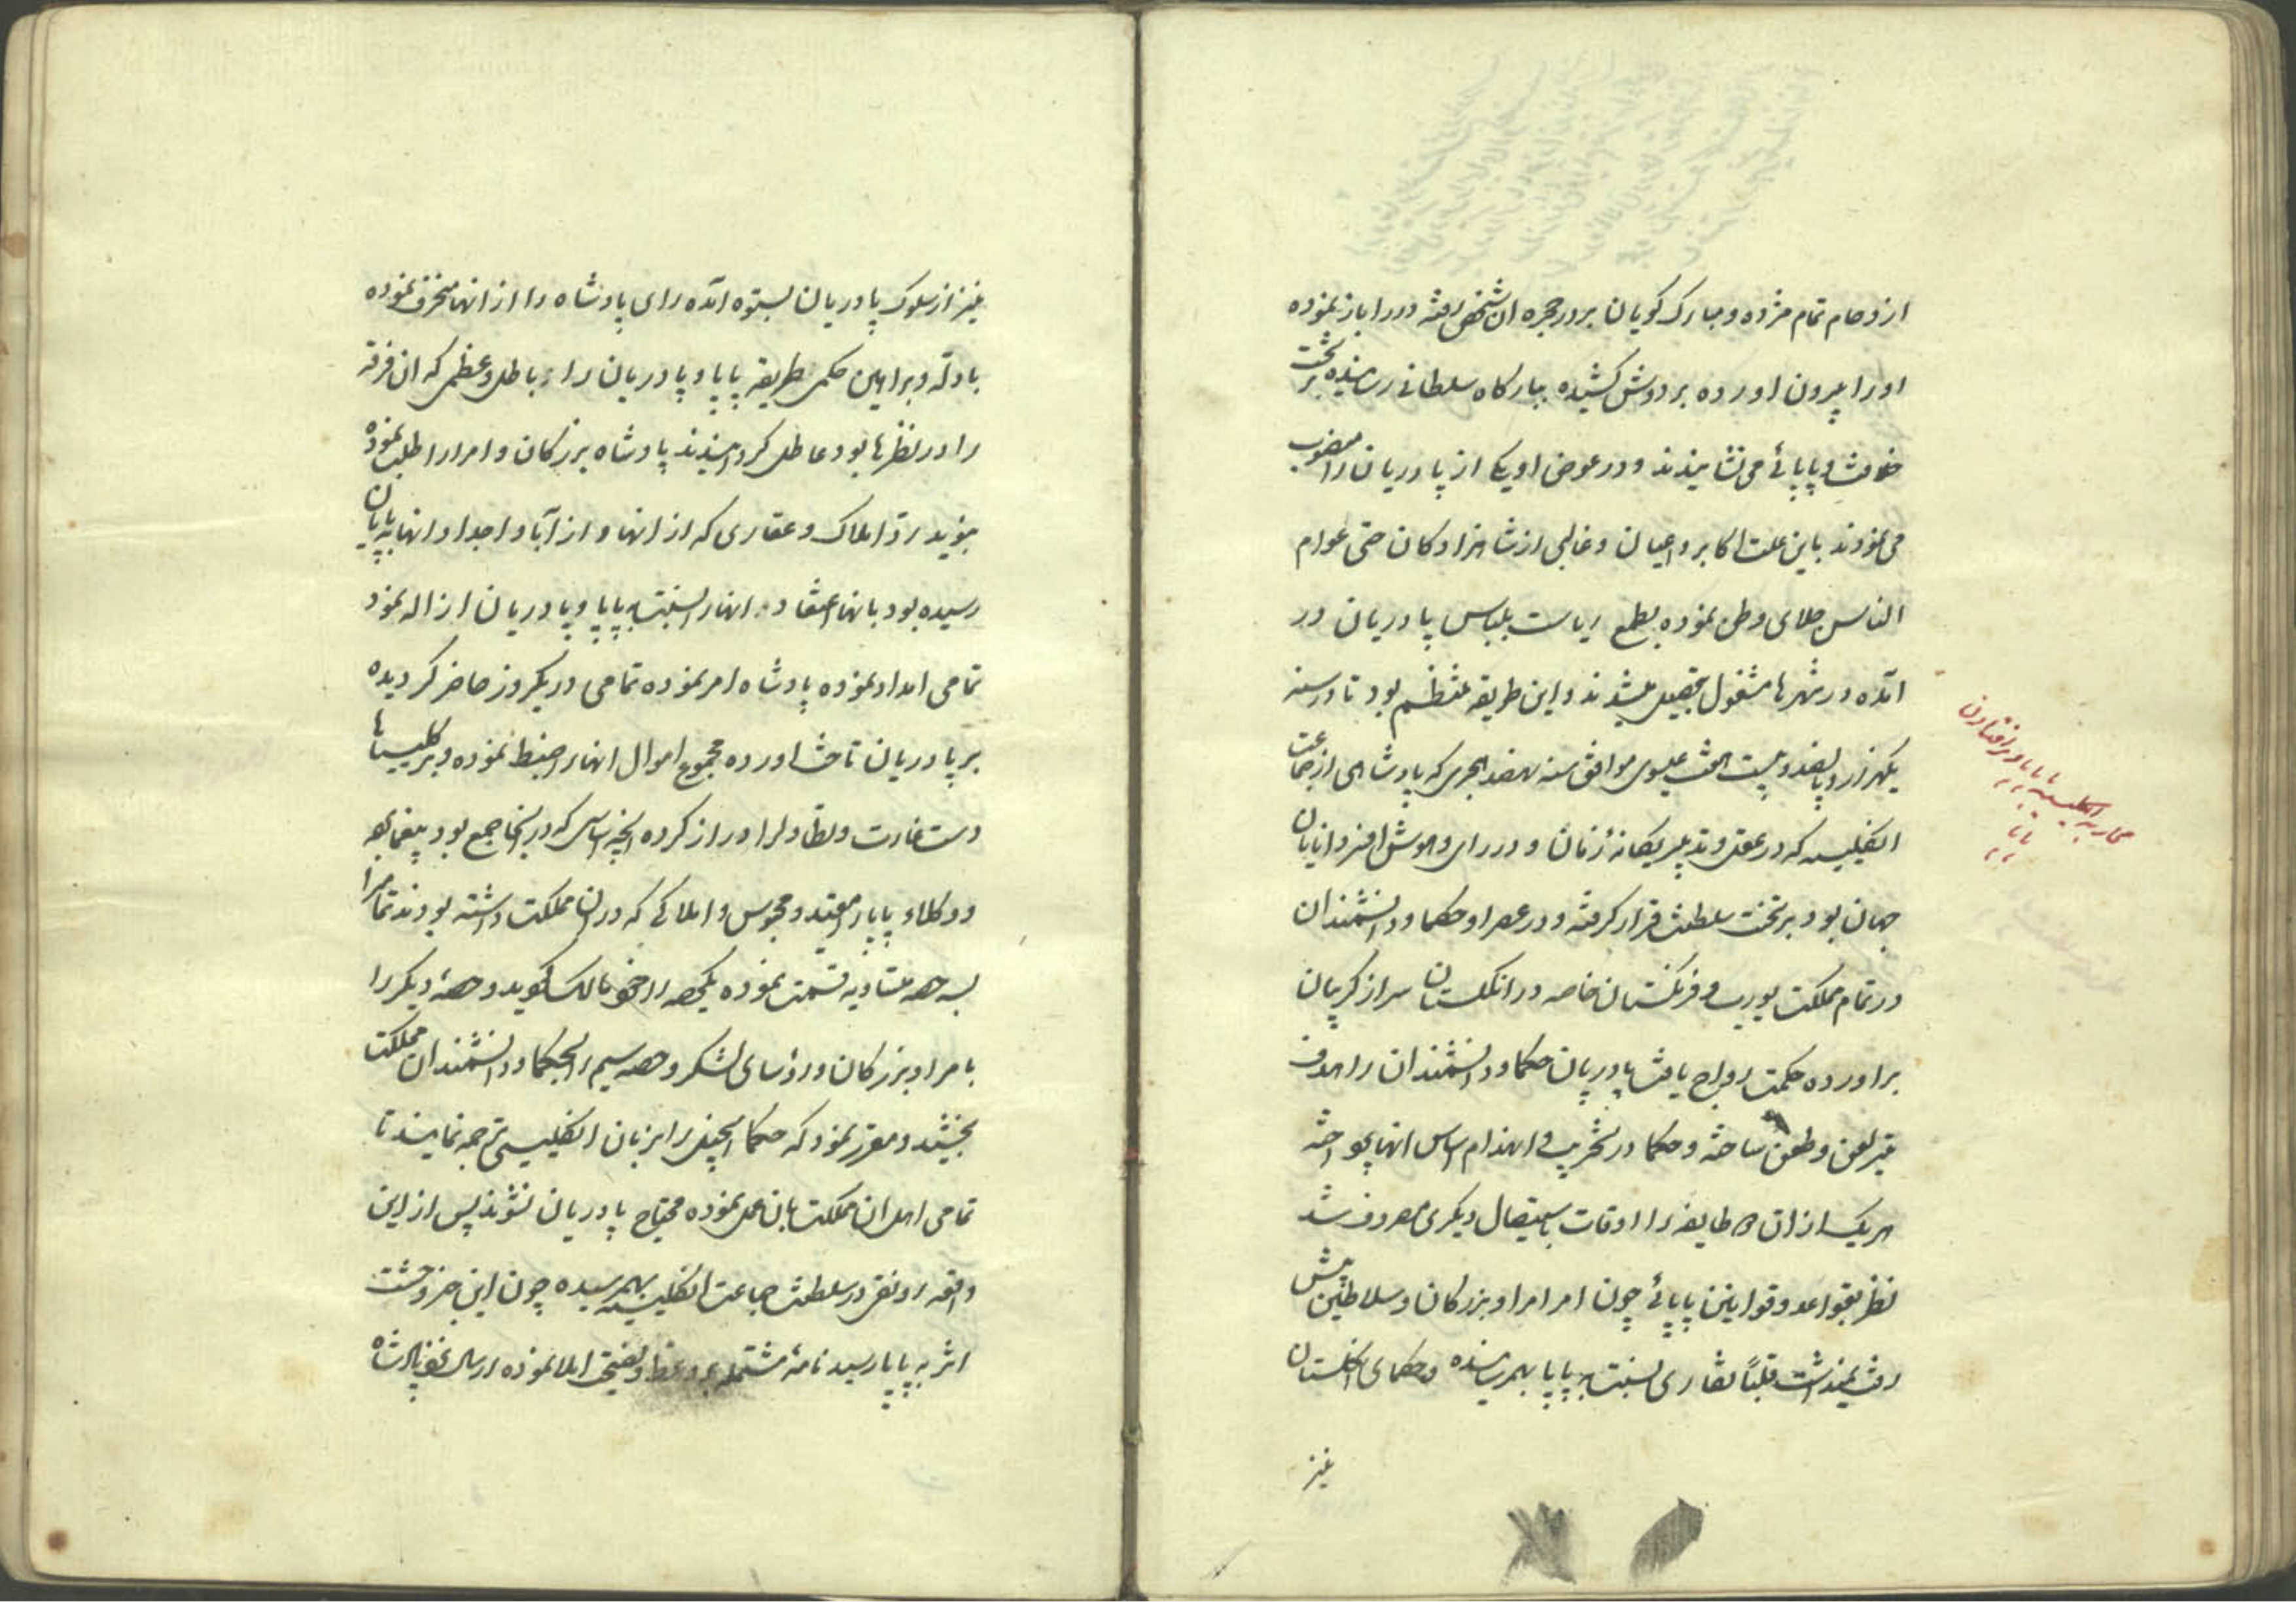 ازدحام تمام مژده و مبارک کویان بر در حجره ان شخص رفته در را باز نموده
او را بیرون اورده بر دوش کشیده ببارکاه سلطانی رسانیده بر تخت
خلافت و پاپائی می نشانیدند و در عوض او یکی از پادریان را منصوب
می نمودند باین علت اکابر و اعیان و غالبی از شاهزادکان حتی عوام
الناس جلای وطن نموده بطمع ریاست بلباس پادریان در
آمده در شهرها مشغول تحصیل میشدند و این طریقه منتظم بود تا در سنه
یکهزار و پانصد و بیست الحث عیسوی موافق سنه نهصد هجری که پادشاهی از جماعت
انکلیسیه که در عقل و تدبیر یکانهٔ زمان و در رای و هوش افزود انایان
جهان بود بر تخت سلطنت قرار کرفته و در عصر او حکما و دانشمندان
در تمام مملکت یورپ و فرنکستان خاصه در انکلستان سر از کریبان
براورده حکمت رواج یافت پادریان حکما و دانشمندان را هدف
تیر لعن و طعن ساخته و حکما در تخریب و انهدام اساس انها پرداخته
هریک از ان دو طایفه را اوقات باستیصال دیکری مصروف شد
نظر بقواعد و قوانین پاپائی چون امر امرا و بزرکان و سلاطین پیش
رفت نمیداشت قلبًا نقاری نسبت به پاپا بهمرسانیده و حکمای انکلستان
نیز
محاربه انکلیسیه با پاپا و برافتادن
پاپا
نیز از سلوک پادریان بستوه آمده رای پادشاه را از انها منحرف نموده
بادله و براهین حکمی طریقه پاپا و پادریان را باطل و عظمی که ان فرقه
را در نظرها بود عاطل کردانیدند پادشاه بزرکان و امرا را طلب نموده
بنوید رد املاک و عقاری که از انها و از آبا و اجداد انها به پاپایان
رسیده بود بانها اعتقاد انها را نسبت به پاپا و پادریان ازاله نمود
تمامی امداد نموده پادشاه امر نموده تمامی در یکروز حاضر کردیده
بر پادریان تاخت اورده مجموع اموال انها را ضبط نموده و بر کلیسیاها
دست غارت و تطاول را دراز کرده انچه اساسی که در انجا جمع بود بیغما برده
و وکلاء پاپا را مقید و محبوس و املاکی که در ان مملکت داشته بودند تمام را
بسه حصه متساویه قسمت نموده یکحصه را خود مالک کردید و حصهٔ دیکر را
بامرا و بزرکان و رؤسای لشکر و حصه سیم را بحکما و دانشمندان مملکت
بخشید و مقرر نمود که حکما انجیل را بزبان انکلیسی ترجمه نمایند تا
تمامی اهل ان مملکت بان عمل نموده محتاج پادریان نشوند پس از این
واقعه رونقی در سلطنت جماعت انکلیسیه بهم رسیده چون این خبر وحشت
اثر به پاپا رسید نامهٔ مشتمل بر وعظ و نصیحت املا نموده ارسال نمود پادشاه